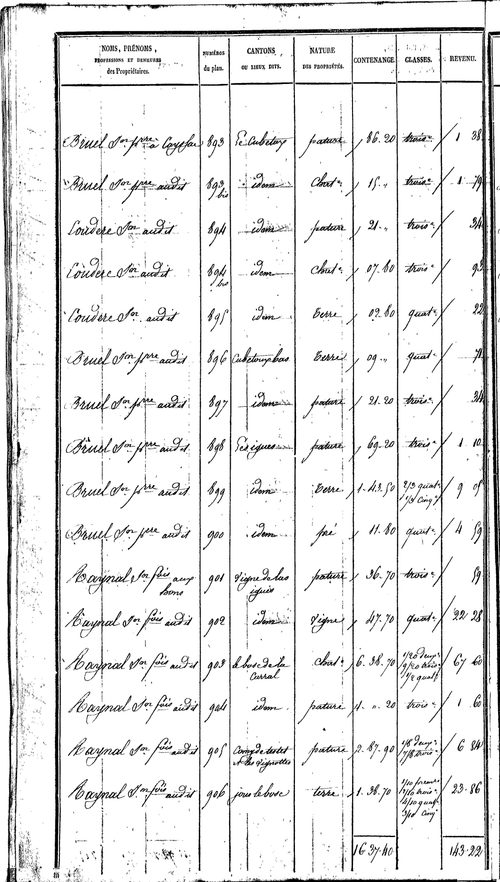 NOMS, PRÉNOMS, PROFESSIONS ET DEMEURES des Propriétaires. NUMÉROS du plan. CANTONS OU LIEUX DITS. NATURE DES PROPRIÉTÉS. CONTENANCE CLASSES. REVENU.
Bruel Son pre à Cayssac 893 pature 86.20 trois 1 38
Bruel Son pre audit 893 bis idem Chat. 15 „ trois 1 79
Coudere Son audit 894 idem pature 21 „ trois 34
Coudere Son audit 894 bis idem Chat. 07.80 trois 93
Coudere Son audit 895 idem terre 02.80 quat. 22
Bruel Son pre audit 896 Cubetoux bas terre 09 „ quat. 71
Bruel Son pre audit 897 idem pature 21.20 trois 34
Bruel Son pre audit 898 pature 69.20 trois 1 10
Bruel Son pre audit 899 idem terre 1.43.50 2/3 quat. 1/3 cinq. 9 05
Bruel Son pre audit 900 idem pré 11.80 quat. 4 59
Raynal Son fois aux bons 901 Vigne de las pature 36.70 trois 59
Raynal Son fois audit 902 idem vigne 47.70 quat. 22 28
Raynal Son fois audit 903 le bosc de la Carral Chat. 6.38.70 1/20 deux 9/20 trois 1/2 quat. 67 60
Raynal Son fois audit 904 idem pature 1 „ 20 trois 1 60
Raynal Son fois audit 905 et les vignottes pature 2.87.90 1/8 deux 7/8 trois 6 84
Raynal Son fois audit 906 jous le bosc terre 1.38.70 4/10 quat. 3/10 cinq 23.86
16 37.40 143.22